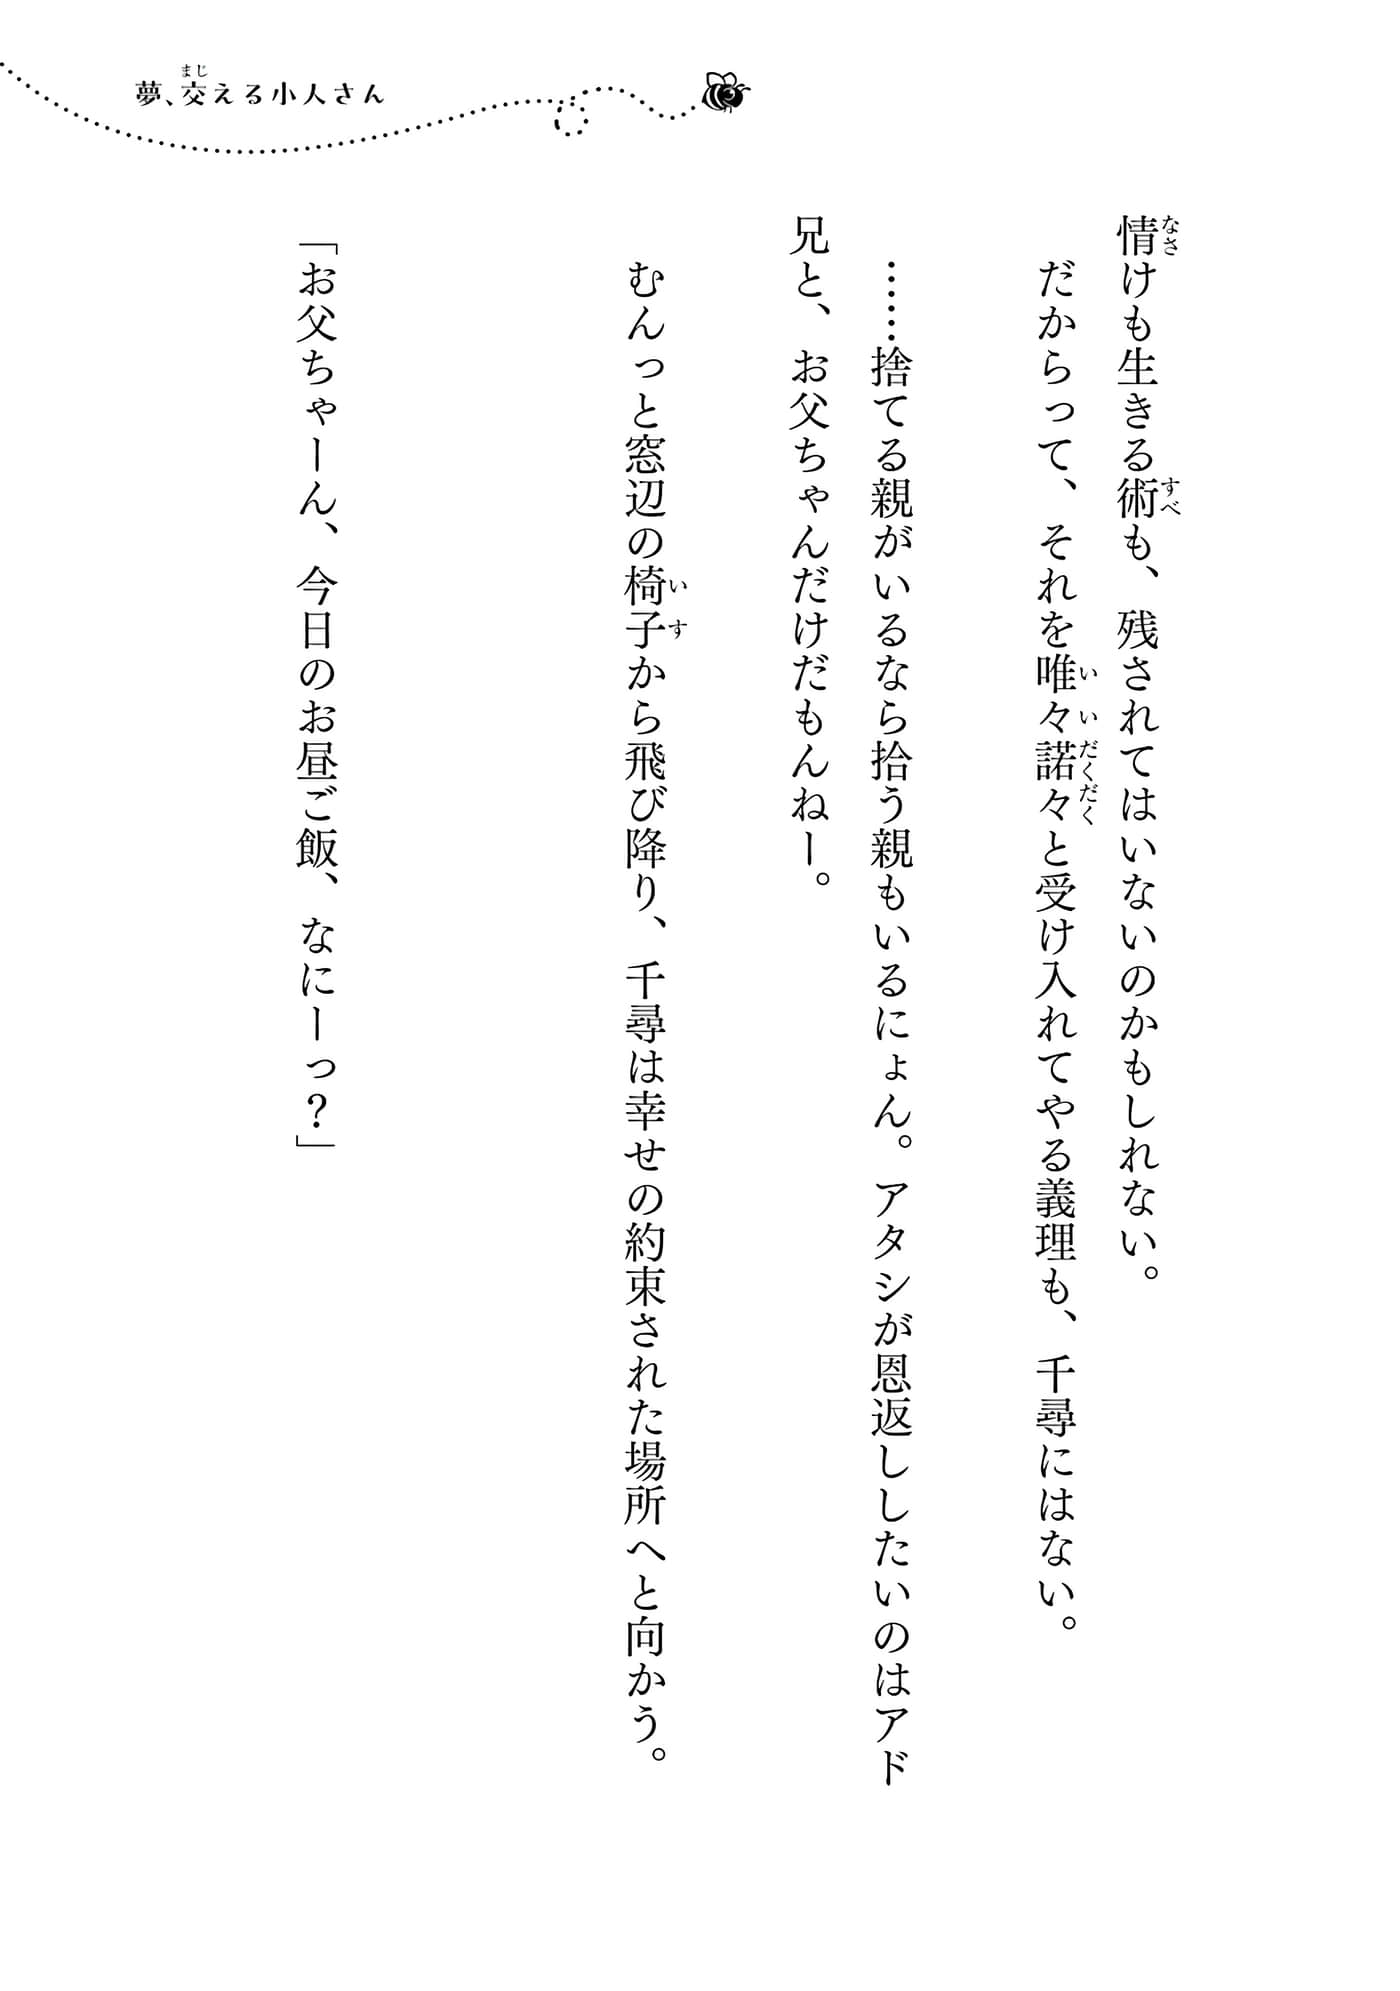 夢、交える小人さん
情けも生きる術も、残されてはいないのかもしれない。
だからって、それを唯々諾々と受け入れてやる義理も、千尋にはない。
……捨てる親がいるなら拾う親もいるにょん。アタシが恩返ししたいのはアド
兄と、お父ちゃんだけだもんねー。
むんっと窓辺の椅子から飛び降り、千尋は幸せの約束された場所へと向かう。
「お父ちゃーん、今日のお昼ご飯、なにーっ？」